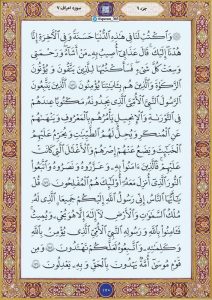 جزء ۹
سوره اعراف ۷
وَاكْتُبْ لَنَا فِي هَٰذِهِ الدُّنْيَا حَسَنَةً وَفِي الْآخِرَةِ إِنَّا
هُدْنَا إِلَيْكَ قَالَ عَذَابِي أُصِيبُ بِهِ مَنْ أَشَاءُ وَرَحْمَتِي
وَسِعَتْ كُلَّ شَيْءٍ فَسَأَكْتُبُهَا لِلَّذِينَ يَتَّقُونَ وَيُؤْتُونَ
الزَّكَوٰةَ وَالَّذِينَ هُمْ بِآيَاتِنَا يُؤْمِنُونَ الَّذِينَ يَتَّبِعُونَ
الرَّسُولَ النَّبِيَّ الْأُمِّيَّ الَّذِي يَجِدُونَهُ مَكْتُوبًا عِنْدَهُمْ
فِي التَّوْرَىٰةِ وَالْإِنْجِيلِ يَأْمُرُهُمْ بِالْمَعْرُوفِ وَيَنْهَىٰهُمْ
عَنِ الْمُنْكَرِ وَيُحِلُّ لَهُمُ الطَّيِّبَاتِ وَيُحَرِّمُ عَلَيْهِمُ
الْخَبَائِثَ وَيَضَعُ عَنْهُمْ إِصْرَهُمْ وَالْأَغْلَالَ الَّتِي كَانَتْ
عَلَيْهِمْ فَالَّذِينَ آمَنُوا بِهِ وَعَزَّرُوهُ وَنَصَرُوهُ وَاتَّبَعُوا
النُّورَ الَّذِي أُنْزِلَ مَعَهُ أُولَٰئِكَ هُمُ الْمُفْلِحُونَ قُلْ
يَا أَيُّهَا النَّاسُ إِنِّي رَسُولُ اللَّهِ إِلَيْكُمْ جَمِيعًا الَّذِي لَهُ
مُلْكُ السَّمَاوَاتِ وَالْأَرْضِ لَا إِلَٰهَ إِلَّا هُوَ يُحْيِي وَيُمِيتُ
فَآمِنُوا بِاللَّهِ وَرَسُولِهِ النَّبِيِّ الْأُمِّيِّ الَّذِي يُؤْمِنُ بِاللَّهِ
وَكَلِمَاتِهِ وَاتَّبِعُوهُ لَعَلَّكُمْ تَهْتَدُونَ وَمِنْ
قَوْمِ مُوسَىٰ أُمَّةٌ يَهْدُونَ بِالْحَقِّ وَبِهِ يَعْدِلُونَ
۱۷۰